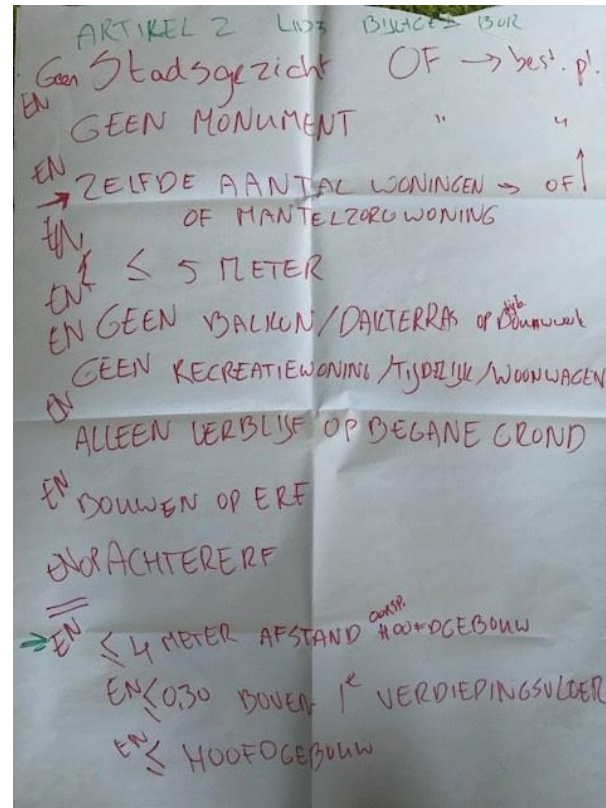 ARTIKEL 2 LID 3 BIJLAGE II BOR
Geen Stadsgezicht OF → best. pl.
EN
GEEN MONUMENT " "
EN
→ ZELFDE AANTAL WONINGEN → OF ↑
OF MANTELZORGWONING
EN
EN ≤ 5 METER
EN GEEN BALKON/DAKTERRAS OP bijb. Bouwwerk
GEEN RECREATIEWONING/TIJDELIJK/WOONWAGEN
EN
ALLEEN VERBLIJF OP BEGANE GROND
EN BOUWEN OP ERF
EN OP ACHTERERF
→ EN ≤ 4 METER AFSTAND OORSP. HOOFDGEBOUW
EN ≤ 0,30 BOVEN 1e VERDIEPINGSVLOER
EN ≤ HOOFDGEBOUW